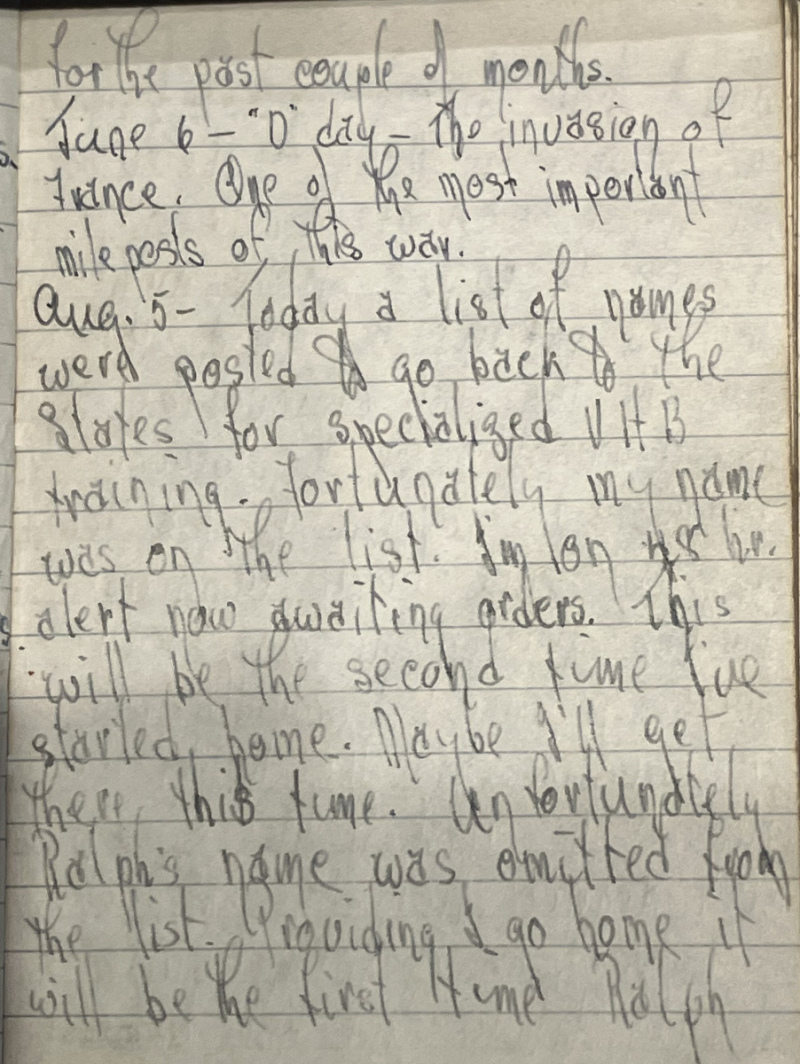 for the past couple of months.
June 6 - "D" day - the invasion of
France. One of the most important
mile posts of this war.
Aug. 5 - Today a list of names
were posted to go back to the
States for specialized VHB
training. Fortunately my name
was on the list. I'm on 48 hr.
alert now awaiting orders. This
will be the second time I've
started home. Maybe I'll get
there this time. Unfortunately
Ralph's name was omitted from
the list. Providing I go home it
will be the first time Ralph